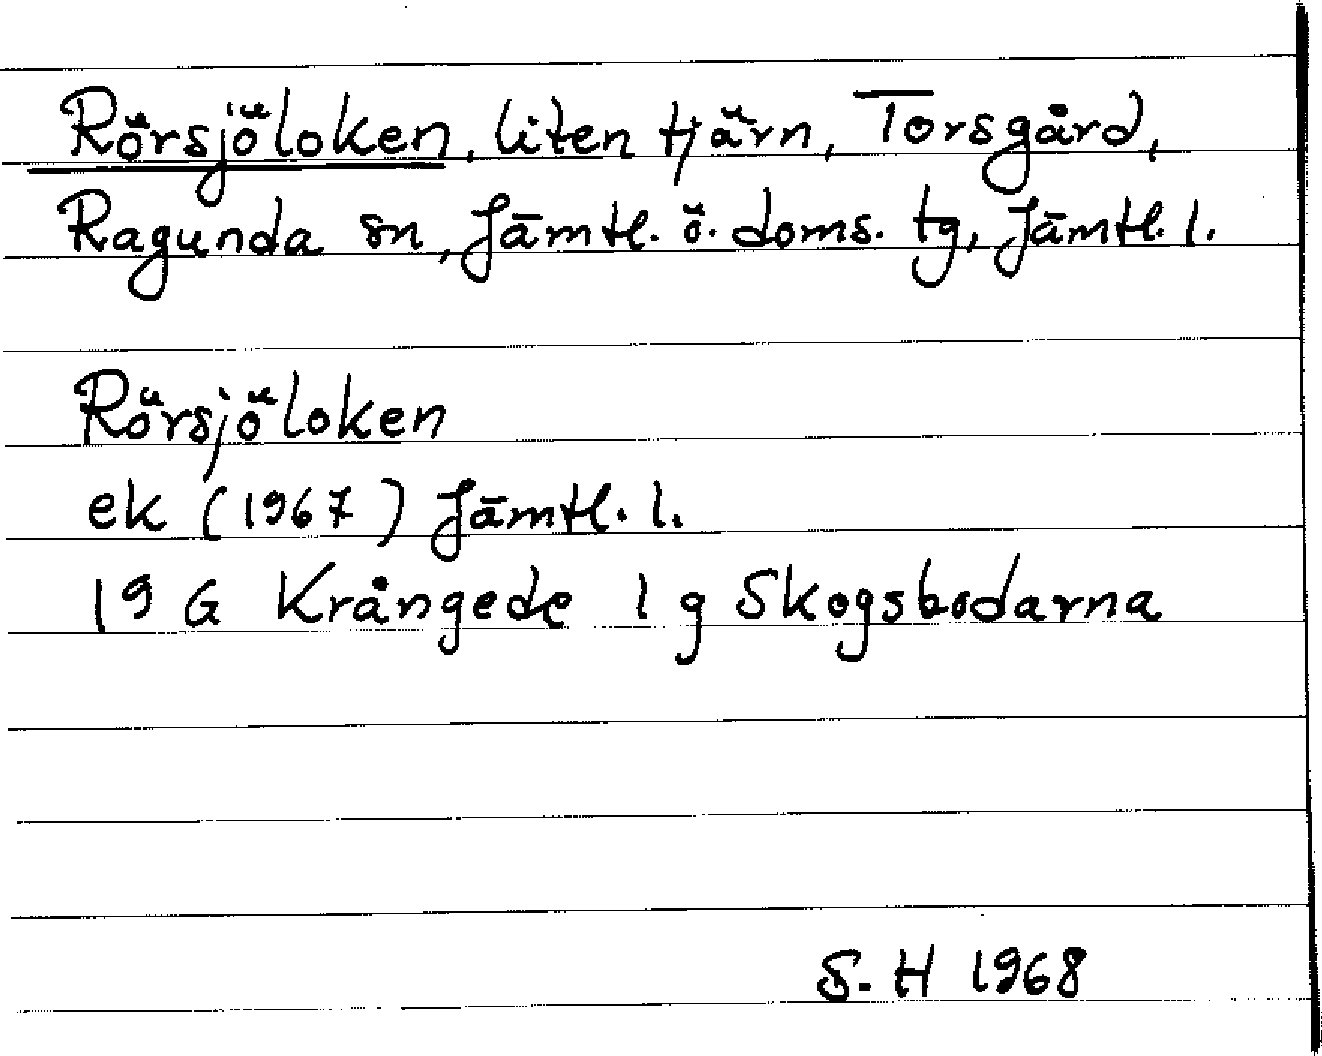 Rörsjöloken, liten tjärn, Torsgård,
Ragunda sn, Jämtl. ö. doms. tg, Jämtl. l.
Rörsjöloken
ek (1967) Jämtl. l.
19 G Krångede 1 g Skogsbodarna
S. H 1968